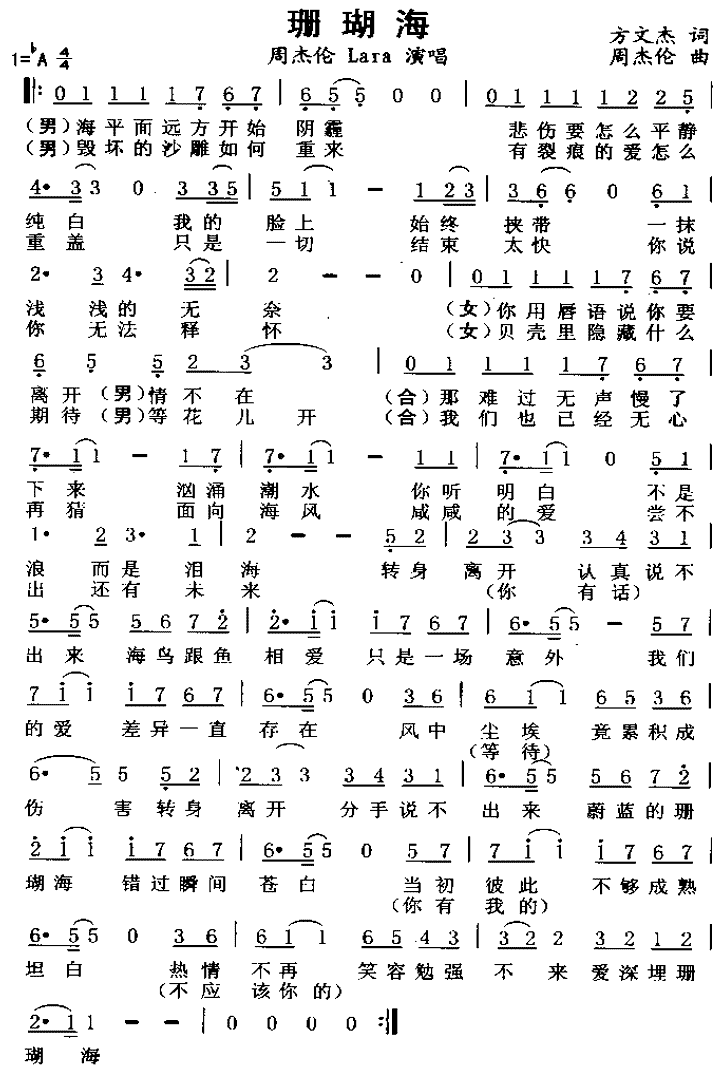 珊瑚海
方文杰 词
1=♭A 4/4 周杰伦 Lara 演唱 周杰伦 曲
0 1 1 1 1 7 6 7 | 6 5 5 0 0 | 0 1 1 1 2 2 5 |
(男)海平面远方开始 阴霾 悲伤要怎么平静
(男)毁坏的沙雕如何 重来 有裂痕的爱怎么
4• 3 3 0 3 3 5 | 5 1 1 - 1 2 3 | 3 6 6 0 6 1 |
纯白 我的 脸上 始终 挟带 一抹
重盖 只是 一切 结束 太快 你说
2• 3 4• 3 2 | 2 - - 0 | 0 1 1 1 1 7 6 7 |
浅浅的无奈 (女)你用唇语说你要
你无法释怀 (女)贝壳里隐藏什么
6 5 5 2 3 3 | 0 1 1 1 1 7 6 7 |
离开(男)情不在 (合)那难过无声慢了
期待(男)等花儿开 (合)我们也已经无心
7• 1 1 - 1 7 | 7• 1 1 - 1 1 | 7• 1 1 0 5 1 |
下来 汹涌 潮水 你听 明白 不是
再猜 面向 海风 咸咸的爱 尝不
1• 2 3• 1 | 2 - - 5 2 | 2 3 3 3 4 3 1 |
浪而是泪海 转身 离开 认真说不
出还有未来 (你有话)
5• 5 5 5 6 7 2 | 2• 1 1 1 7 6 7 | 6• 5 5 - 5 7 |
出来 海鸟跟鱼 相爱 只是一场 意外 我们
7 1 1 1 7 6 7 | 6• 5 5 0 3 6 | 6 1 1 6 5 3 6 |
的爱 差异一直 存在 风中 尘埃 竟累积成
(等待)
6• 5 5 5 2 | 2 3 3 3 4 3 1 | 6• 5 5 5 6 7 2 |
伤害转身 离开 分手说不 出来 蔚蓝的珊
2 1 1 1 7 6 7 | 6• 5 5 0 5 7 | 7 1 1 1 7 6 7 |
瑚海 错过瞬间 苍白 当初 彼此 不够成熟
(你有我的)
6• 5 5 0 3 6 | 6 1 1 6 5 4 3 | 3 2 2 3 2 1 2 |
坦白 热情 不再 笑容勉强 不来 爱深埋珊
(不应该你的)
2• 1 1 - - | 0 0 0 0 :||
瑚海